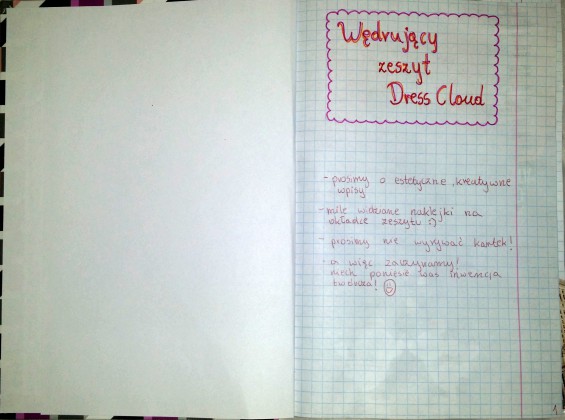 Wędrujący
zeszyt
Dress Cloud
- prosimy o estetyczne, kreatywne
wpisy
- mile widziane naklejki na
okładce zeszytu :)
- prosimy nie wyrywać kartek!
- a więc zaczynamy!
niech poniesie was inwencja
twórcza!
1